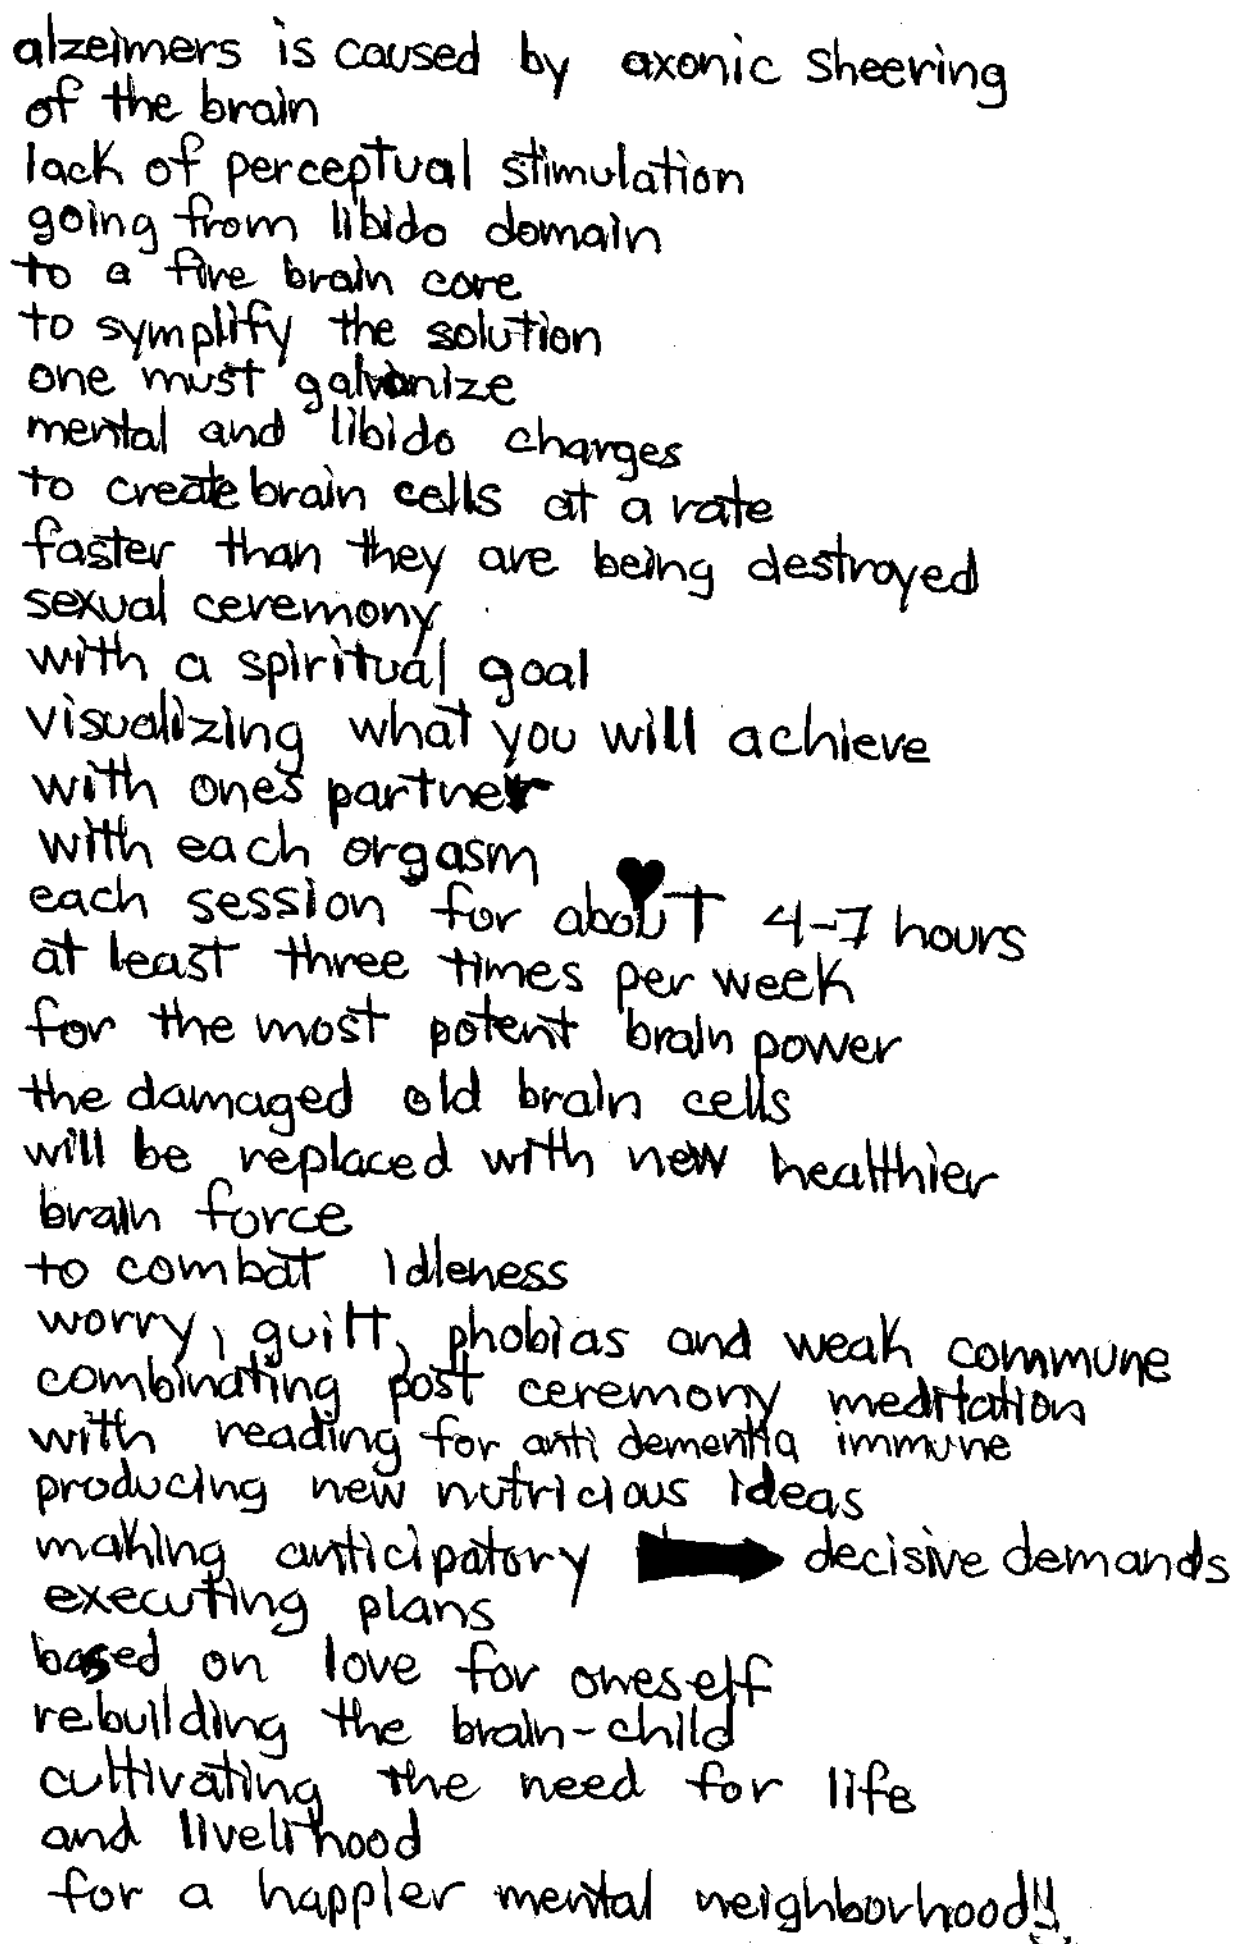 alzeimers is caused by axonic sheering
of the brain
lack of perceptual stimulation
going from libido domain
to a five brain core
to symplify the solution
one must galvanize
mental and libido charges
to create brain cells at a rate
faster than they are being destroyed
sexual ceremony
with a spiritual goal
visualizing what you will achieve
with ones partner
with each orgasm
each session for about 4-7 hours
at least three times per week
for the most potent brain power
the damaged old brain cells
will be replaced with new healthier
brain force
to combat idleness
worry, guilt, phobias and weak commune
combinating post ceremony meditation
with reading for anti dementia immune
producing new nutricious ideas
making anticipatory decisive demands
executing plans
based on love for oneself
rebuilding the brain-child
cultivating the need for life
and livelithood
for a happier mental neighborhood!!